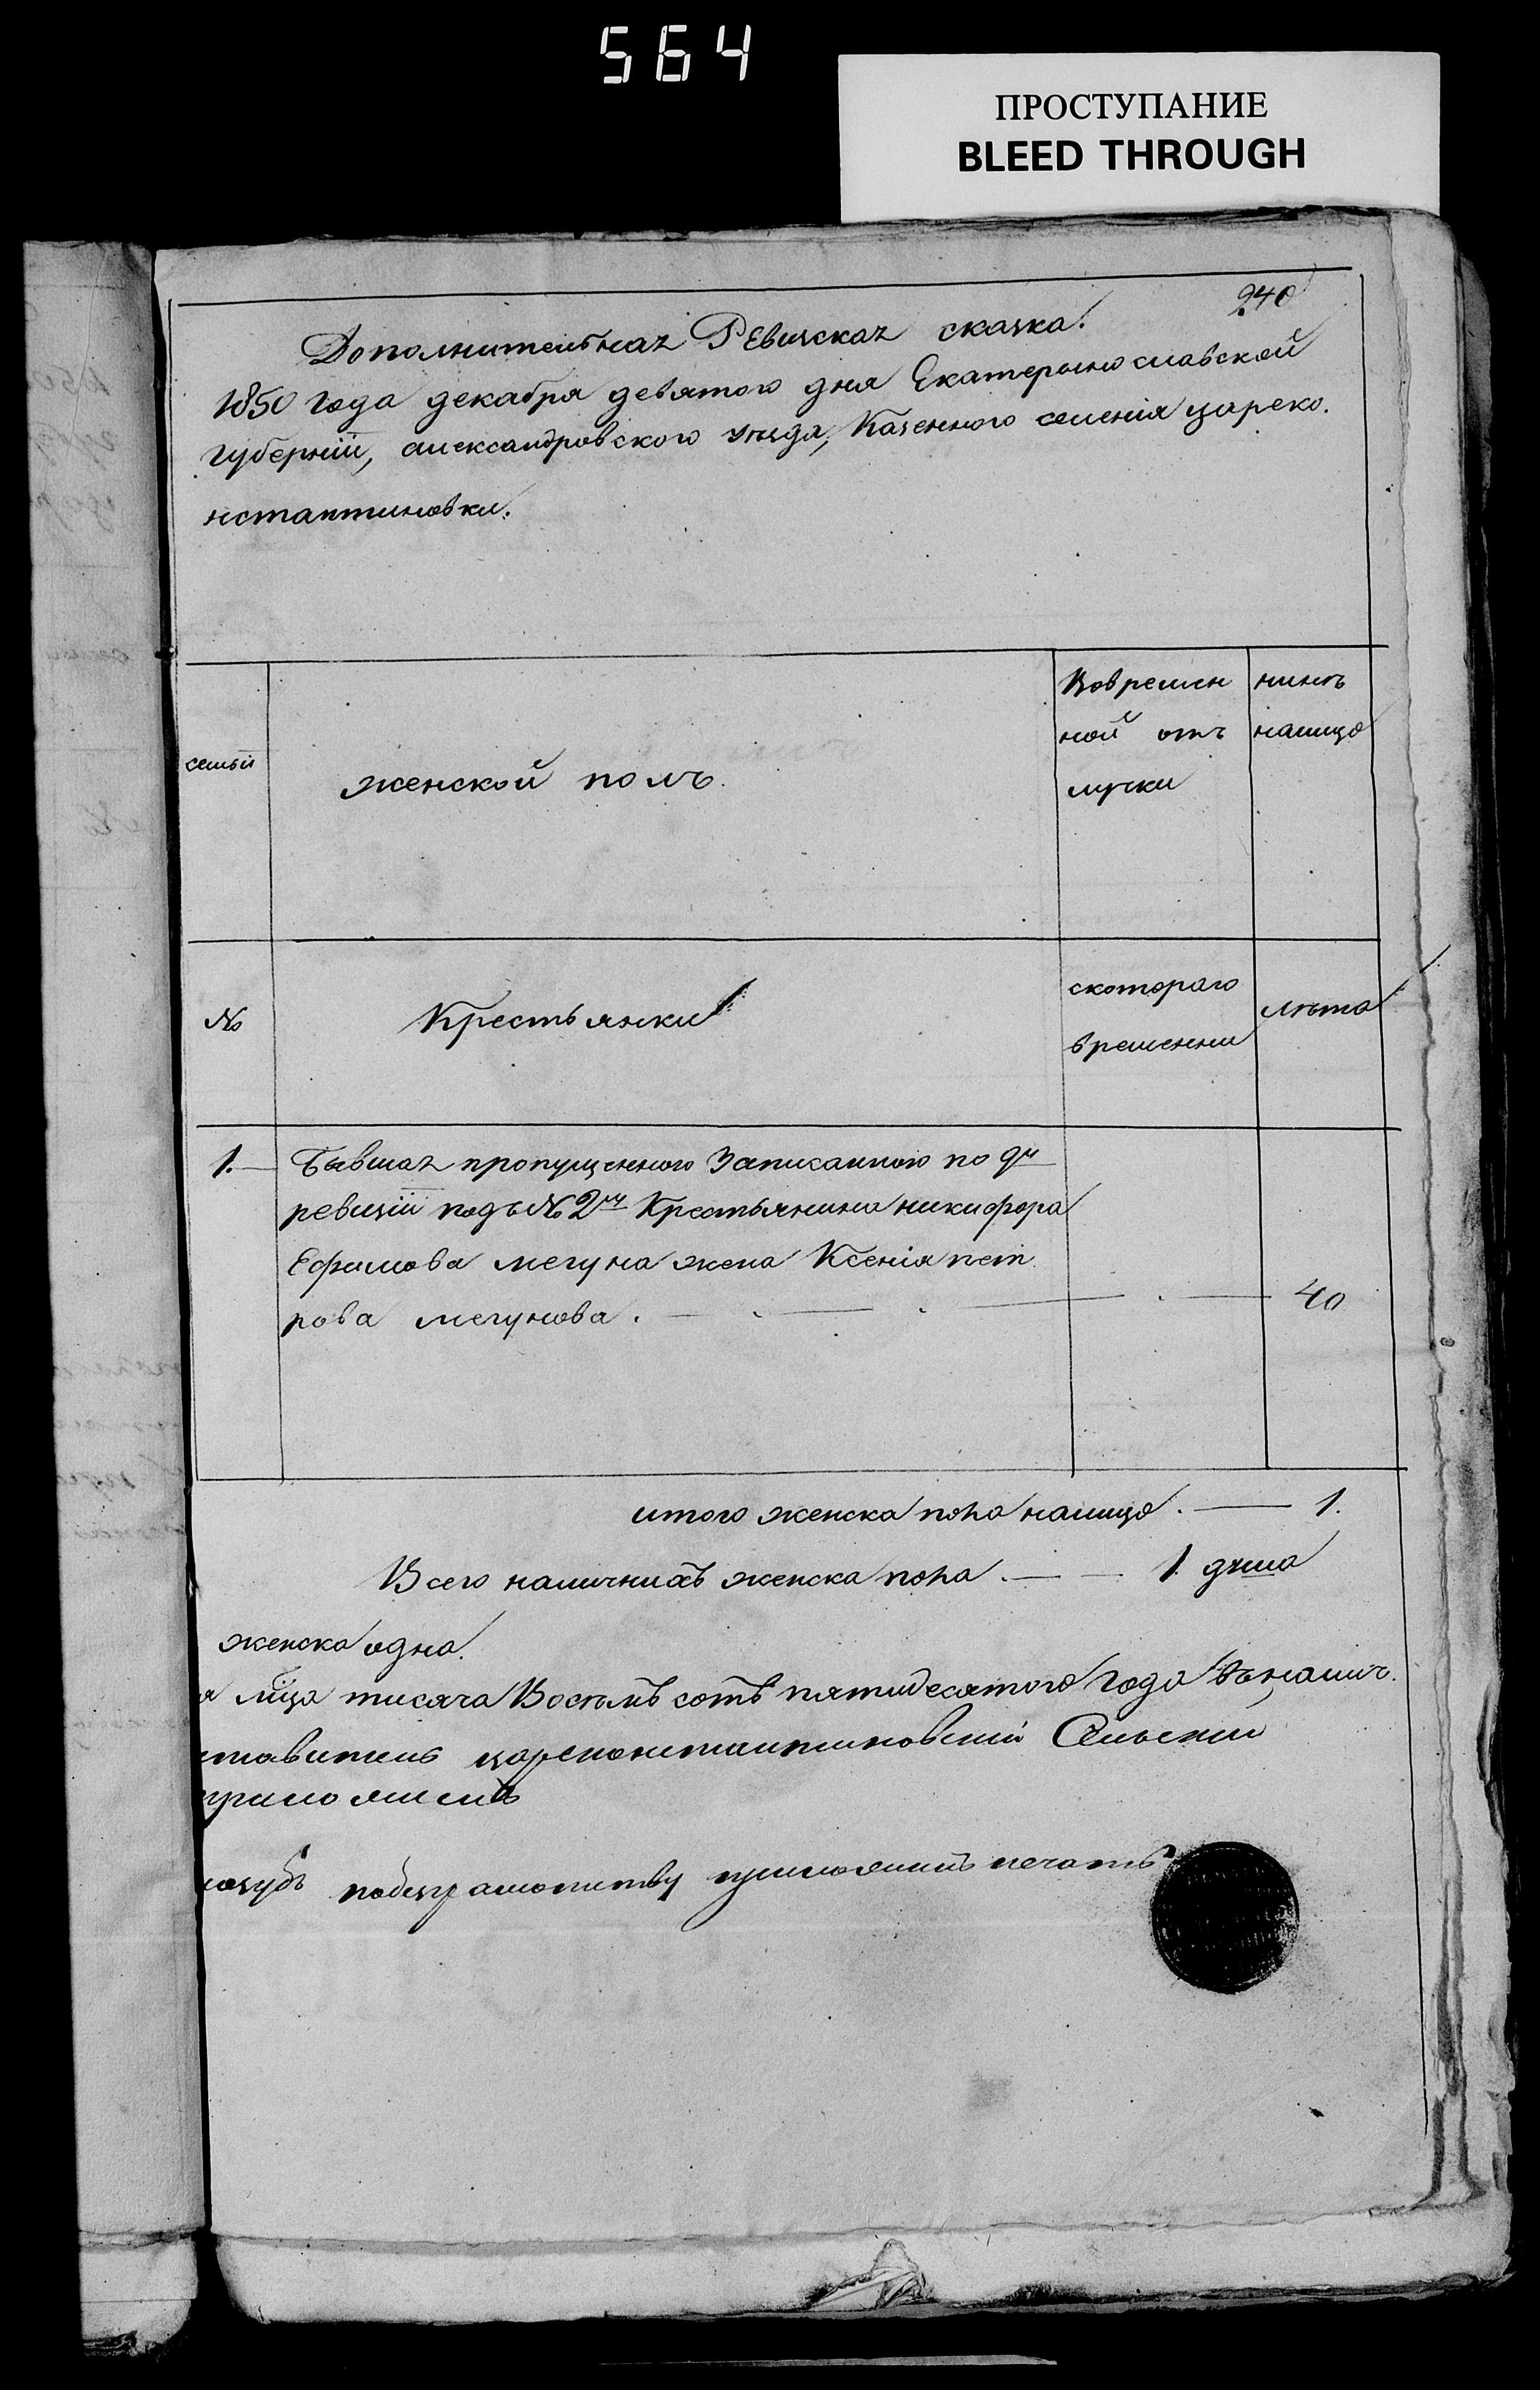 564
ПРОСТУПАНИЕ
BLEED THROUGH
240
Дополнительная Ревизская сказка.
1850 года декабря девятого дня Екатериносласвской
губернiи, александровского уезда, Казенного селенiя цареко.
нстантиновки.
семьи
женской полъ.
Вовремен
ной отъ
лучки
нинѣ
налицо
№
Крестьянки
скотораго
временни
лѣта
1. Бывшая пропущенного Записанного по 9й
ревизiи подъ № 2м Крестьянина никифора
Ефимова мегуна жена Ксенiя пет
рова мегунова. 40
итого женска пола налицо. — 1.
Всего наличнихъ женска пола. — 1 душа
женска одна.
лица тисяча Восемъ сотъ пятидесятого года вънали
цареконстантиновский Сельский
приложилъ
приложилъ печать